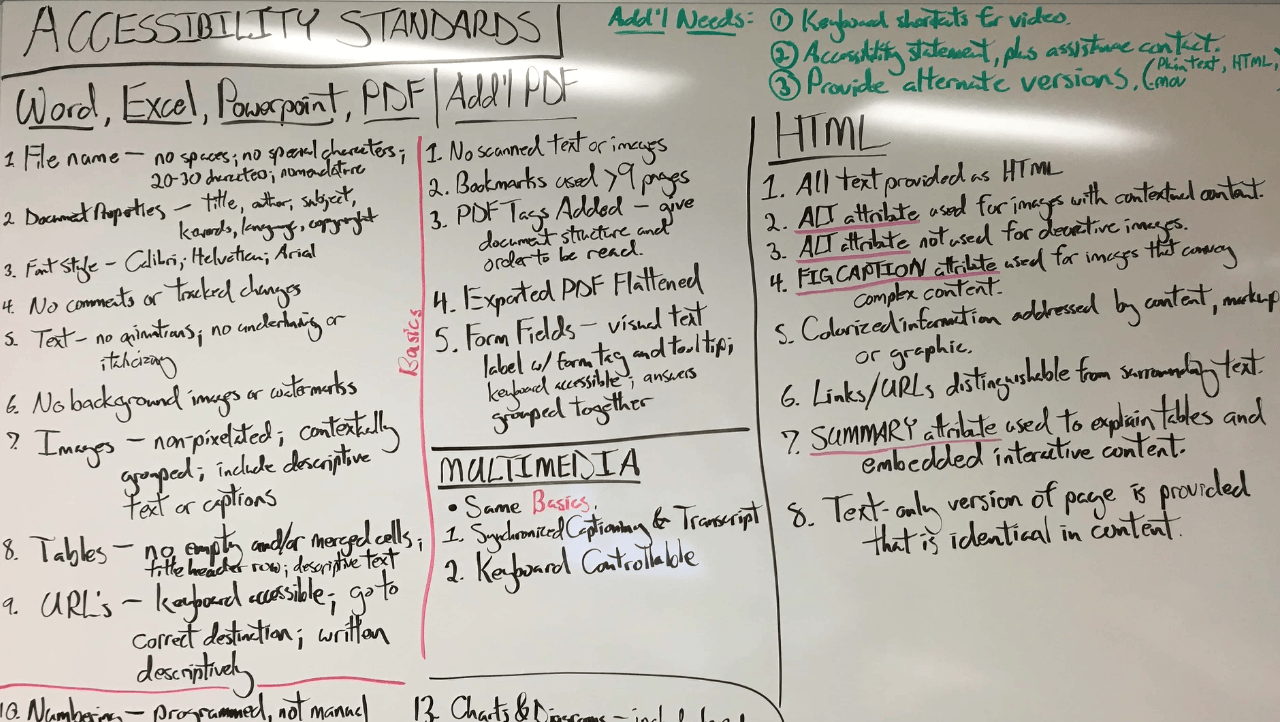 ACCESSIBILITY STANDARDS
Add'l Needs: ① Keyboard shortcuts for video.
② Accessibility statement, plus assistance contact.
③ Provide alternate versions. (Plain text, HTML,
.mov
Word, Excel, Powerpoint, PDF
1. File name – no spaces; no special characters;
20-30 characters; nomenclature
2. Document Properties – title, author, subject,
keywords, language, copyright
3. Font Style – Calibri; Helvetica; Arial
4. No comments or tracked changes
5. Text – no animations; no underlining or
italicizing
6. No background images or watermarks
7. Images – non-pixelated; contextually
grouped; include descriptive
text or captions
8. Tables – no empty and/or merged cells;
title header row; descriptive text
9. URL's – keyboard accessible; go to
correct destination; written
descriptively
10. Numbering – programmed, not manual
Basics
Add'l PDF
1. No scanned text or images
2. Bookmarks used >9 pages
3. PDF Tags Added – give
document structure and
order to be read.
4. Exported PDF Flattened
5. Form Fields – visual text
label w/ form tag and tooltip;
keyboard accessible; answers
grouped together
MULTIMEDIA
• Same Basics.
1. Synchronized Captioning & Transcript
2. Keyboard Controllable
13. Charts & Diagrams –
HTML
1. All text provided as HTML
2. ALT attribute used for images with contextual content.
3. ALT attribute not used for decorative images.
4. FIGCAPTION attribute used for images that convey
complex content.
5. Colorized information addressed by content, markup
or graphic.
6. Links/URLs distinguishable from surrounding text.
7. SUMMARY attribute used to explain tables and
embedded interactive content.
8. Text-only version of page is provided
that is identical in content.